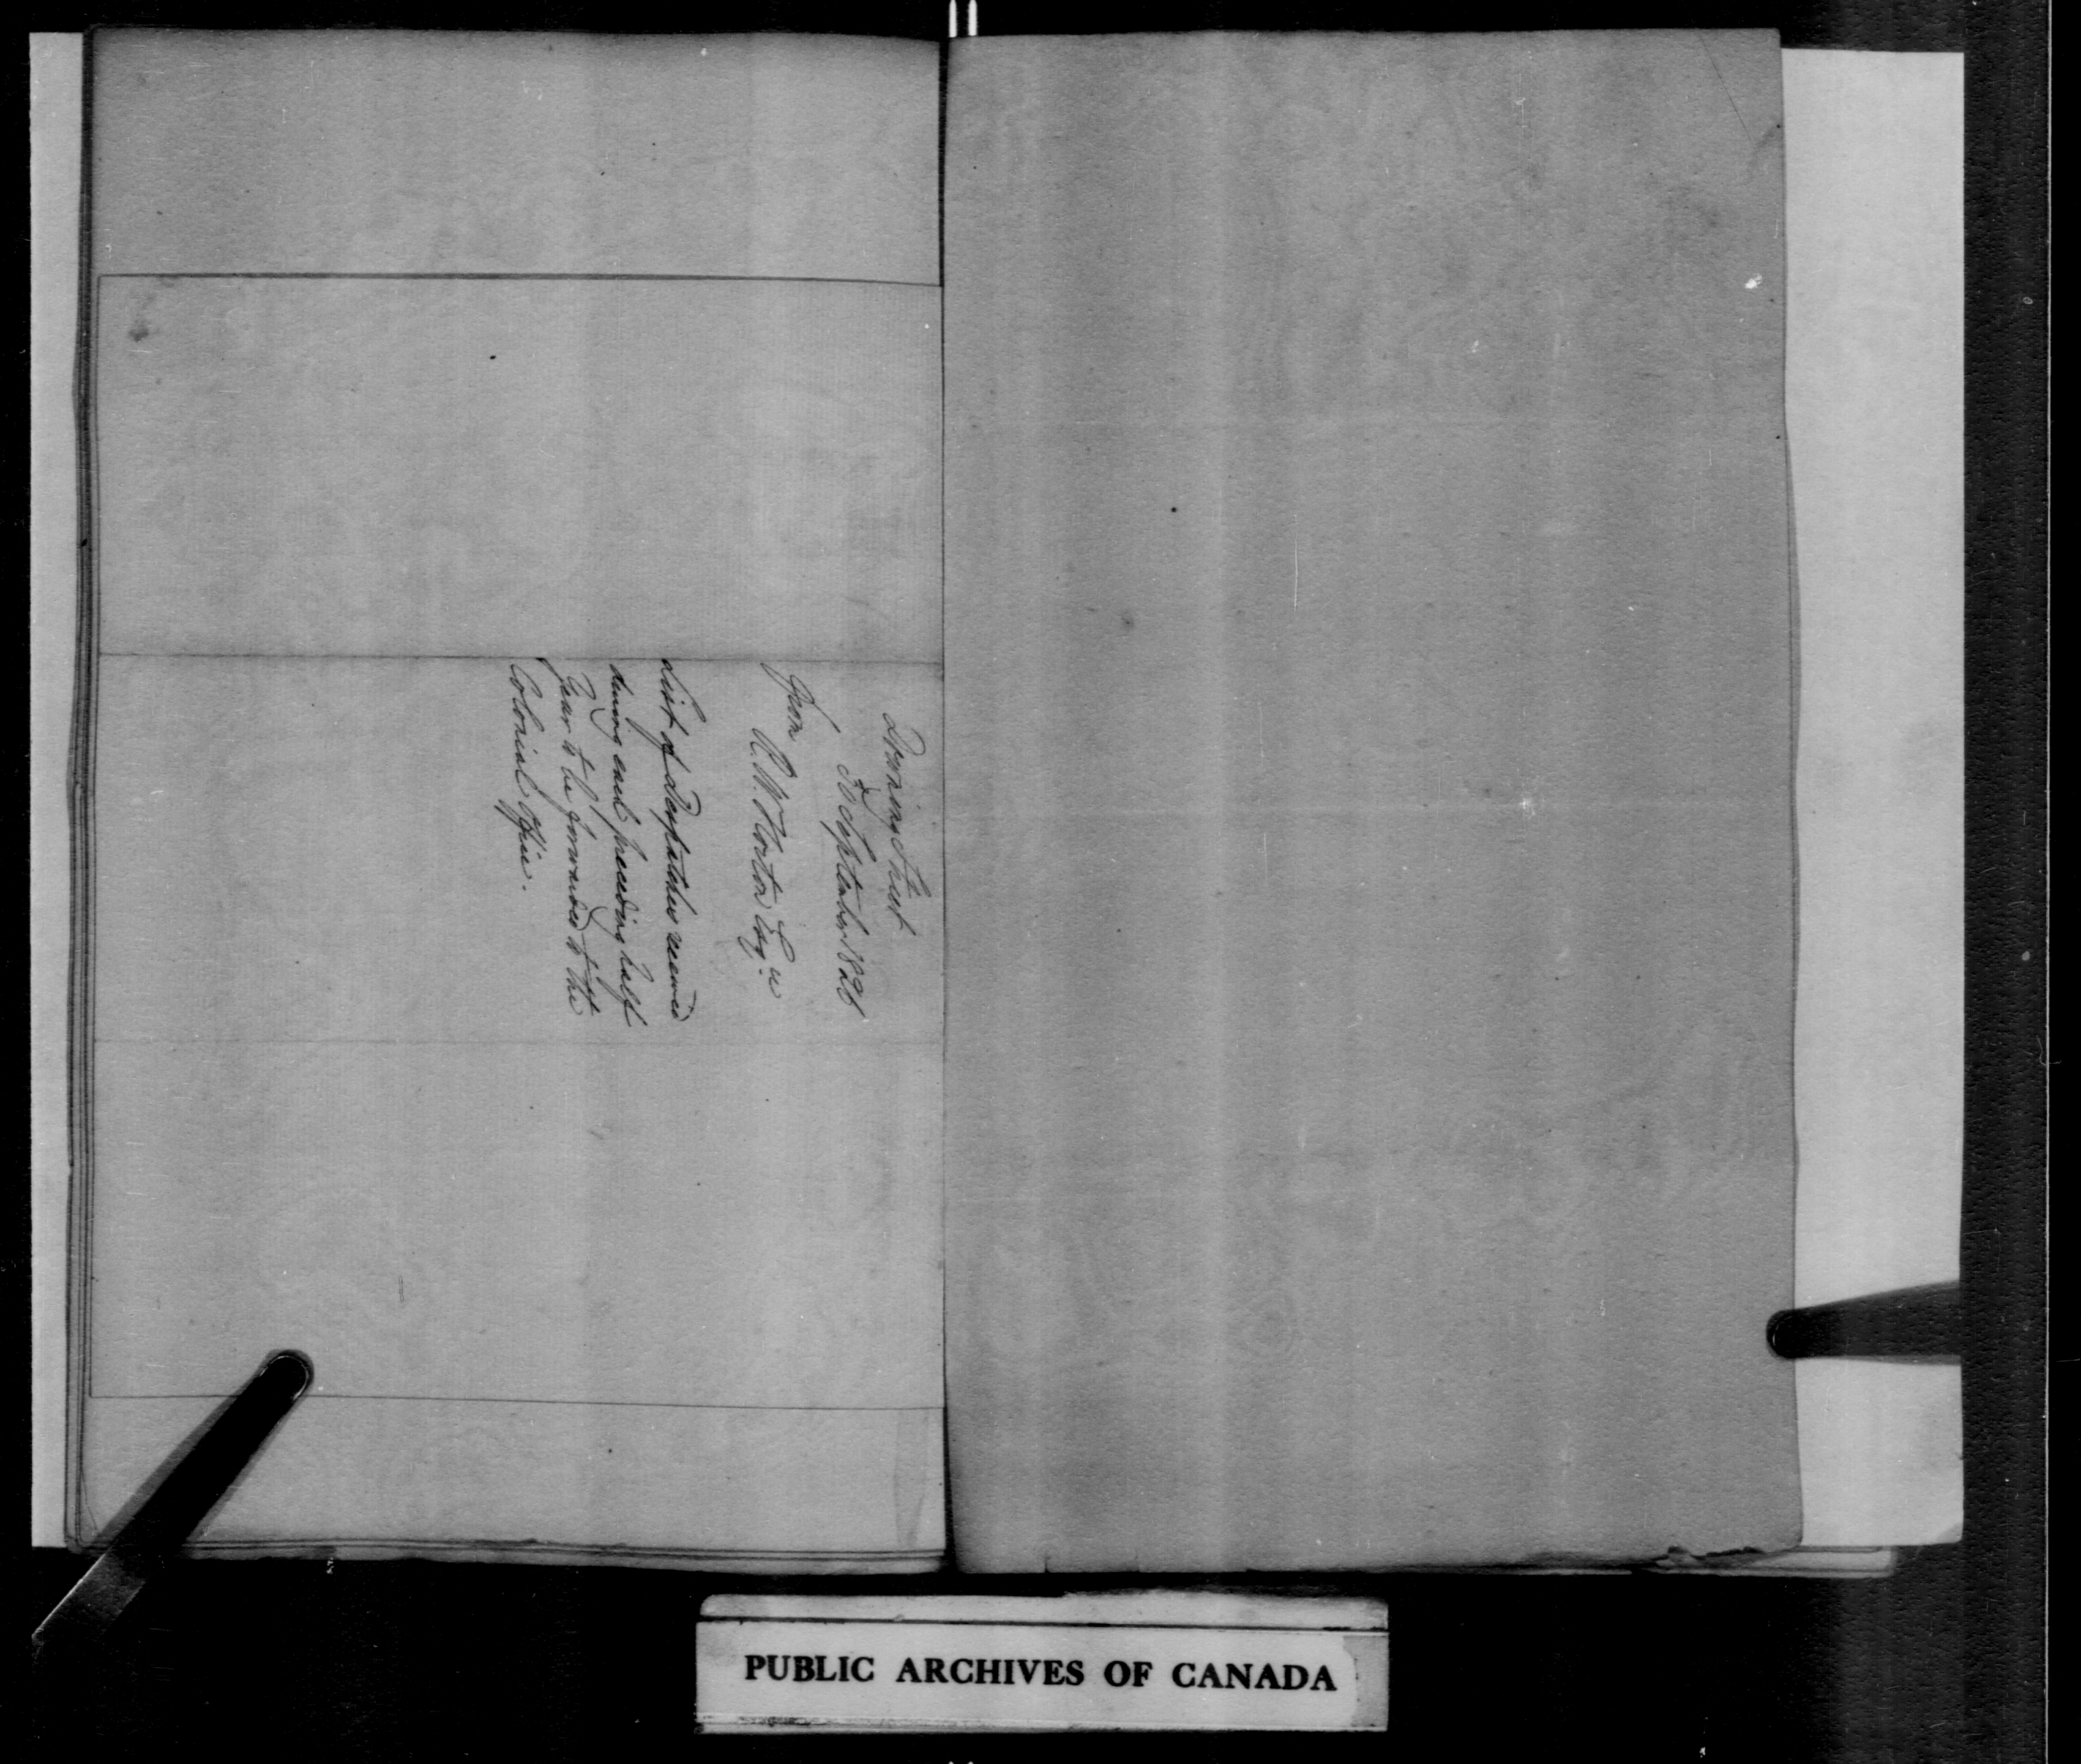 Downing Street
September 1826
From
R. W. Horton Esqre
List of Despatches received
during each preceding half
Year to be forwarded to the
Colonial Office.
PUBLIC ARCHIVES OF CANADA